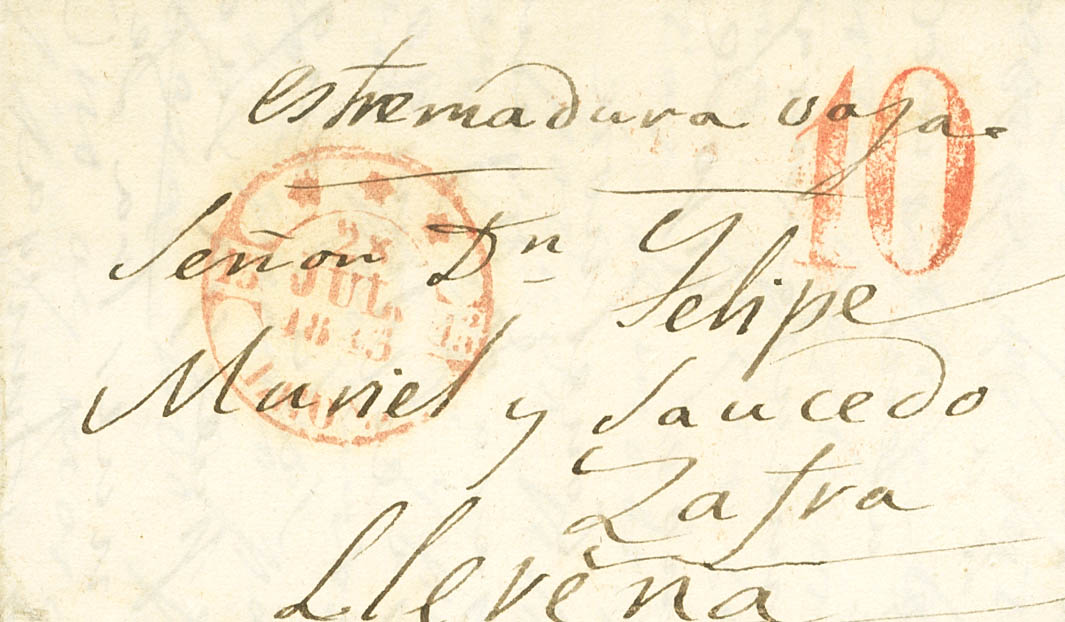 estremadura vaja.
10
Señor Dn Felipe
JUL
Muriel y Saucedo
Zafra
Llerena